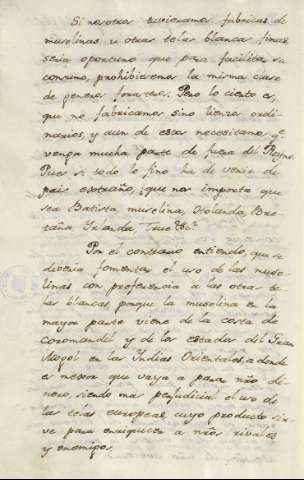 Si nosotros tuvieramos fabricas de
muselinas, u otras telas blancas finas
seria oportuno que para facilitar su
consumo, prohibiesemos la misma clase
de generos forasteros; Pero lo cierto es,
que no fabricamos sino lienzos ordi-
narios, y aun de estos necesitamos qe
venga mucha parte de fuera del Reyno.
Pues si todo lo fino ha de venir de
pais extraño, ¿que nos importa que
sea Batista, muselina, Holanda, Bre-
taña, Irlanda, True &ca.
Por el contrario entiendo, que se
deberia fomentar el uso de las muse-
linas con preferencia a las otras te-
las blancas, porque la muselina en la
mayor parte viene de la costa de
Coromandel, y de los estados del Gran
Mogol en las Indias Orientales, a donde
es menos que vaya a parar nño di-
nero, siendo mas perjudicial el uso de
las telas europeas, cuyo producto sir-
ve para enriquecer a nños rivales
y enemigos.